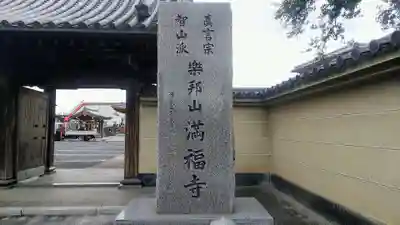 真言宗
智山派
樂邦山満福寺